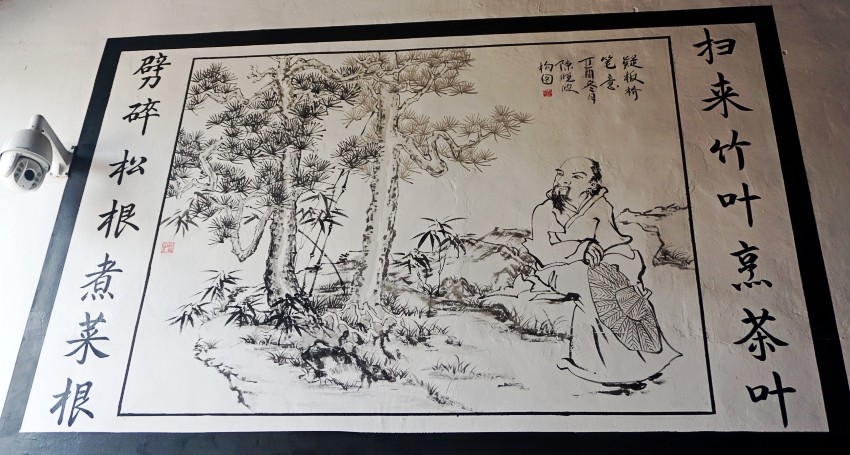 扫来竹叶烹茶叶
板桥
笔意
丁酉冬月
陈晓
构图
劈碎松根煮菜根